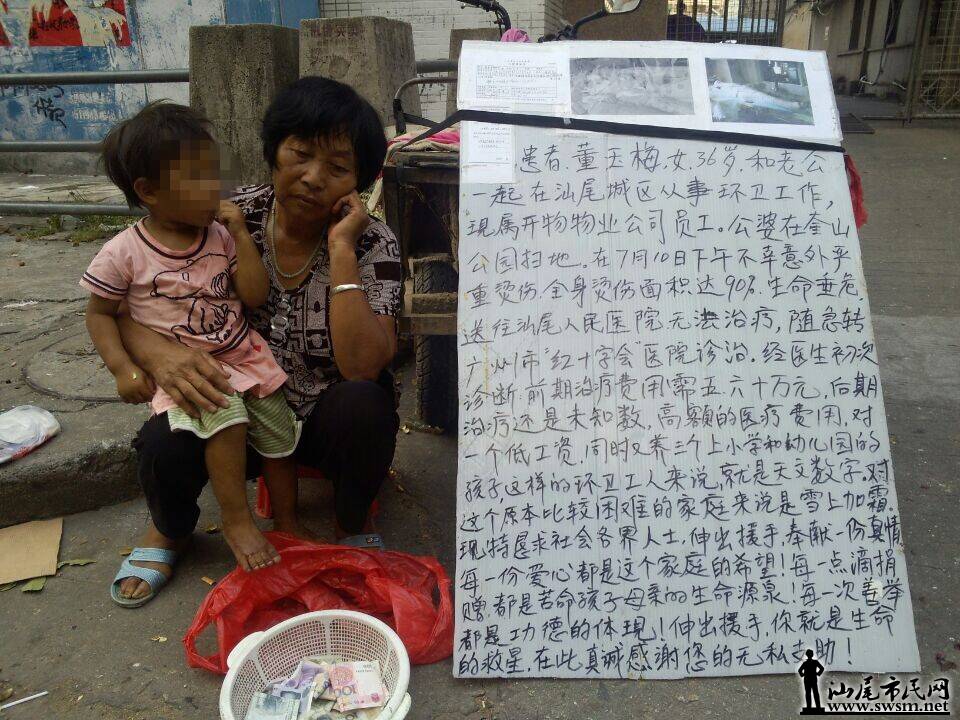 患者董玉梅,女,36岁.和老公
一起在汕尾城区从事环卫工作,
现属开物物业公司员工。公婆在奎山
公园扫地。在7月10日下午不幸意外严
重烫伤.全身烫伤面积达90%.生命垂危.
送往汕尾人民医院无法治疗,随急转
广州市"红十字会"医院诊治.经医生初次
诊断.前期治疗费用需五.六十万元,后期
治疗还是未知数,高额的医疗费用,对
一个低工资,同时又养三个上小学和幼儿园的
孩子,这样的环卫工人来说,就是天文数字.对
这个原本比较困难的家庭来说是雪上加霜.
现特恳求社会各界人士,伸出援手,奉献一份真情
每一份爱心都是这个家庭的希望!每一点滴捐
赠都是苦命孩子母亲的生命源泉!每一次善举
都是功德的体现!伸出援手,你就是生命
的救星.在此真诚感谢您的无私助!
100
汕尾市民网
www.swsm.net